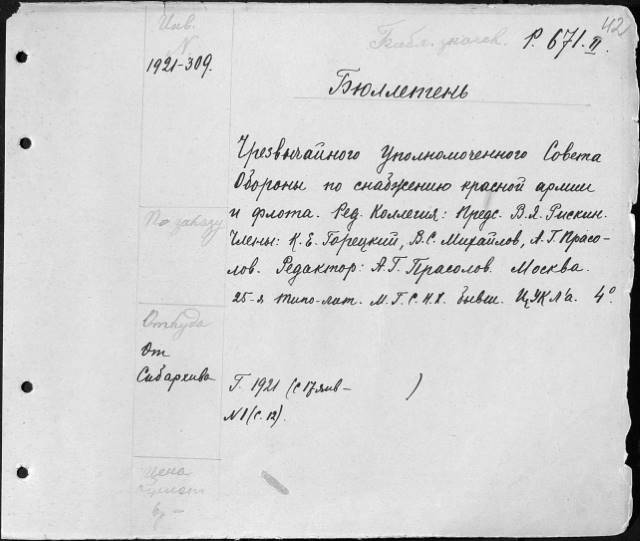 42
Инв.
N
1921-309.
Библ. значек. Р. 671. II.
Бюллетень
Чрезвычайного Уполномоченного Совета
Обороны по снабжению красной армии
и флота. Ред. Коллегия: Предс. В.Я. Рискин.
Члены: К.Е. Горецкий, В.С. Михайлов, А.Г. Прасо-
лов. Редактор: А.Г. Прасолов. Москва.
25-я типо-лит. М.Г.С.Н.Х. бывш. 4°.
По заказу
Откуда
От
Сибархива
Г. 1921 (с 17 янв- )
N 1 (с. 12).
Цена